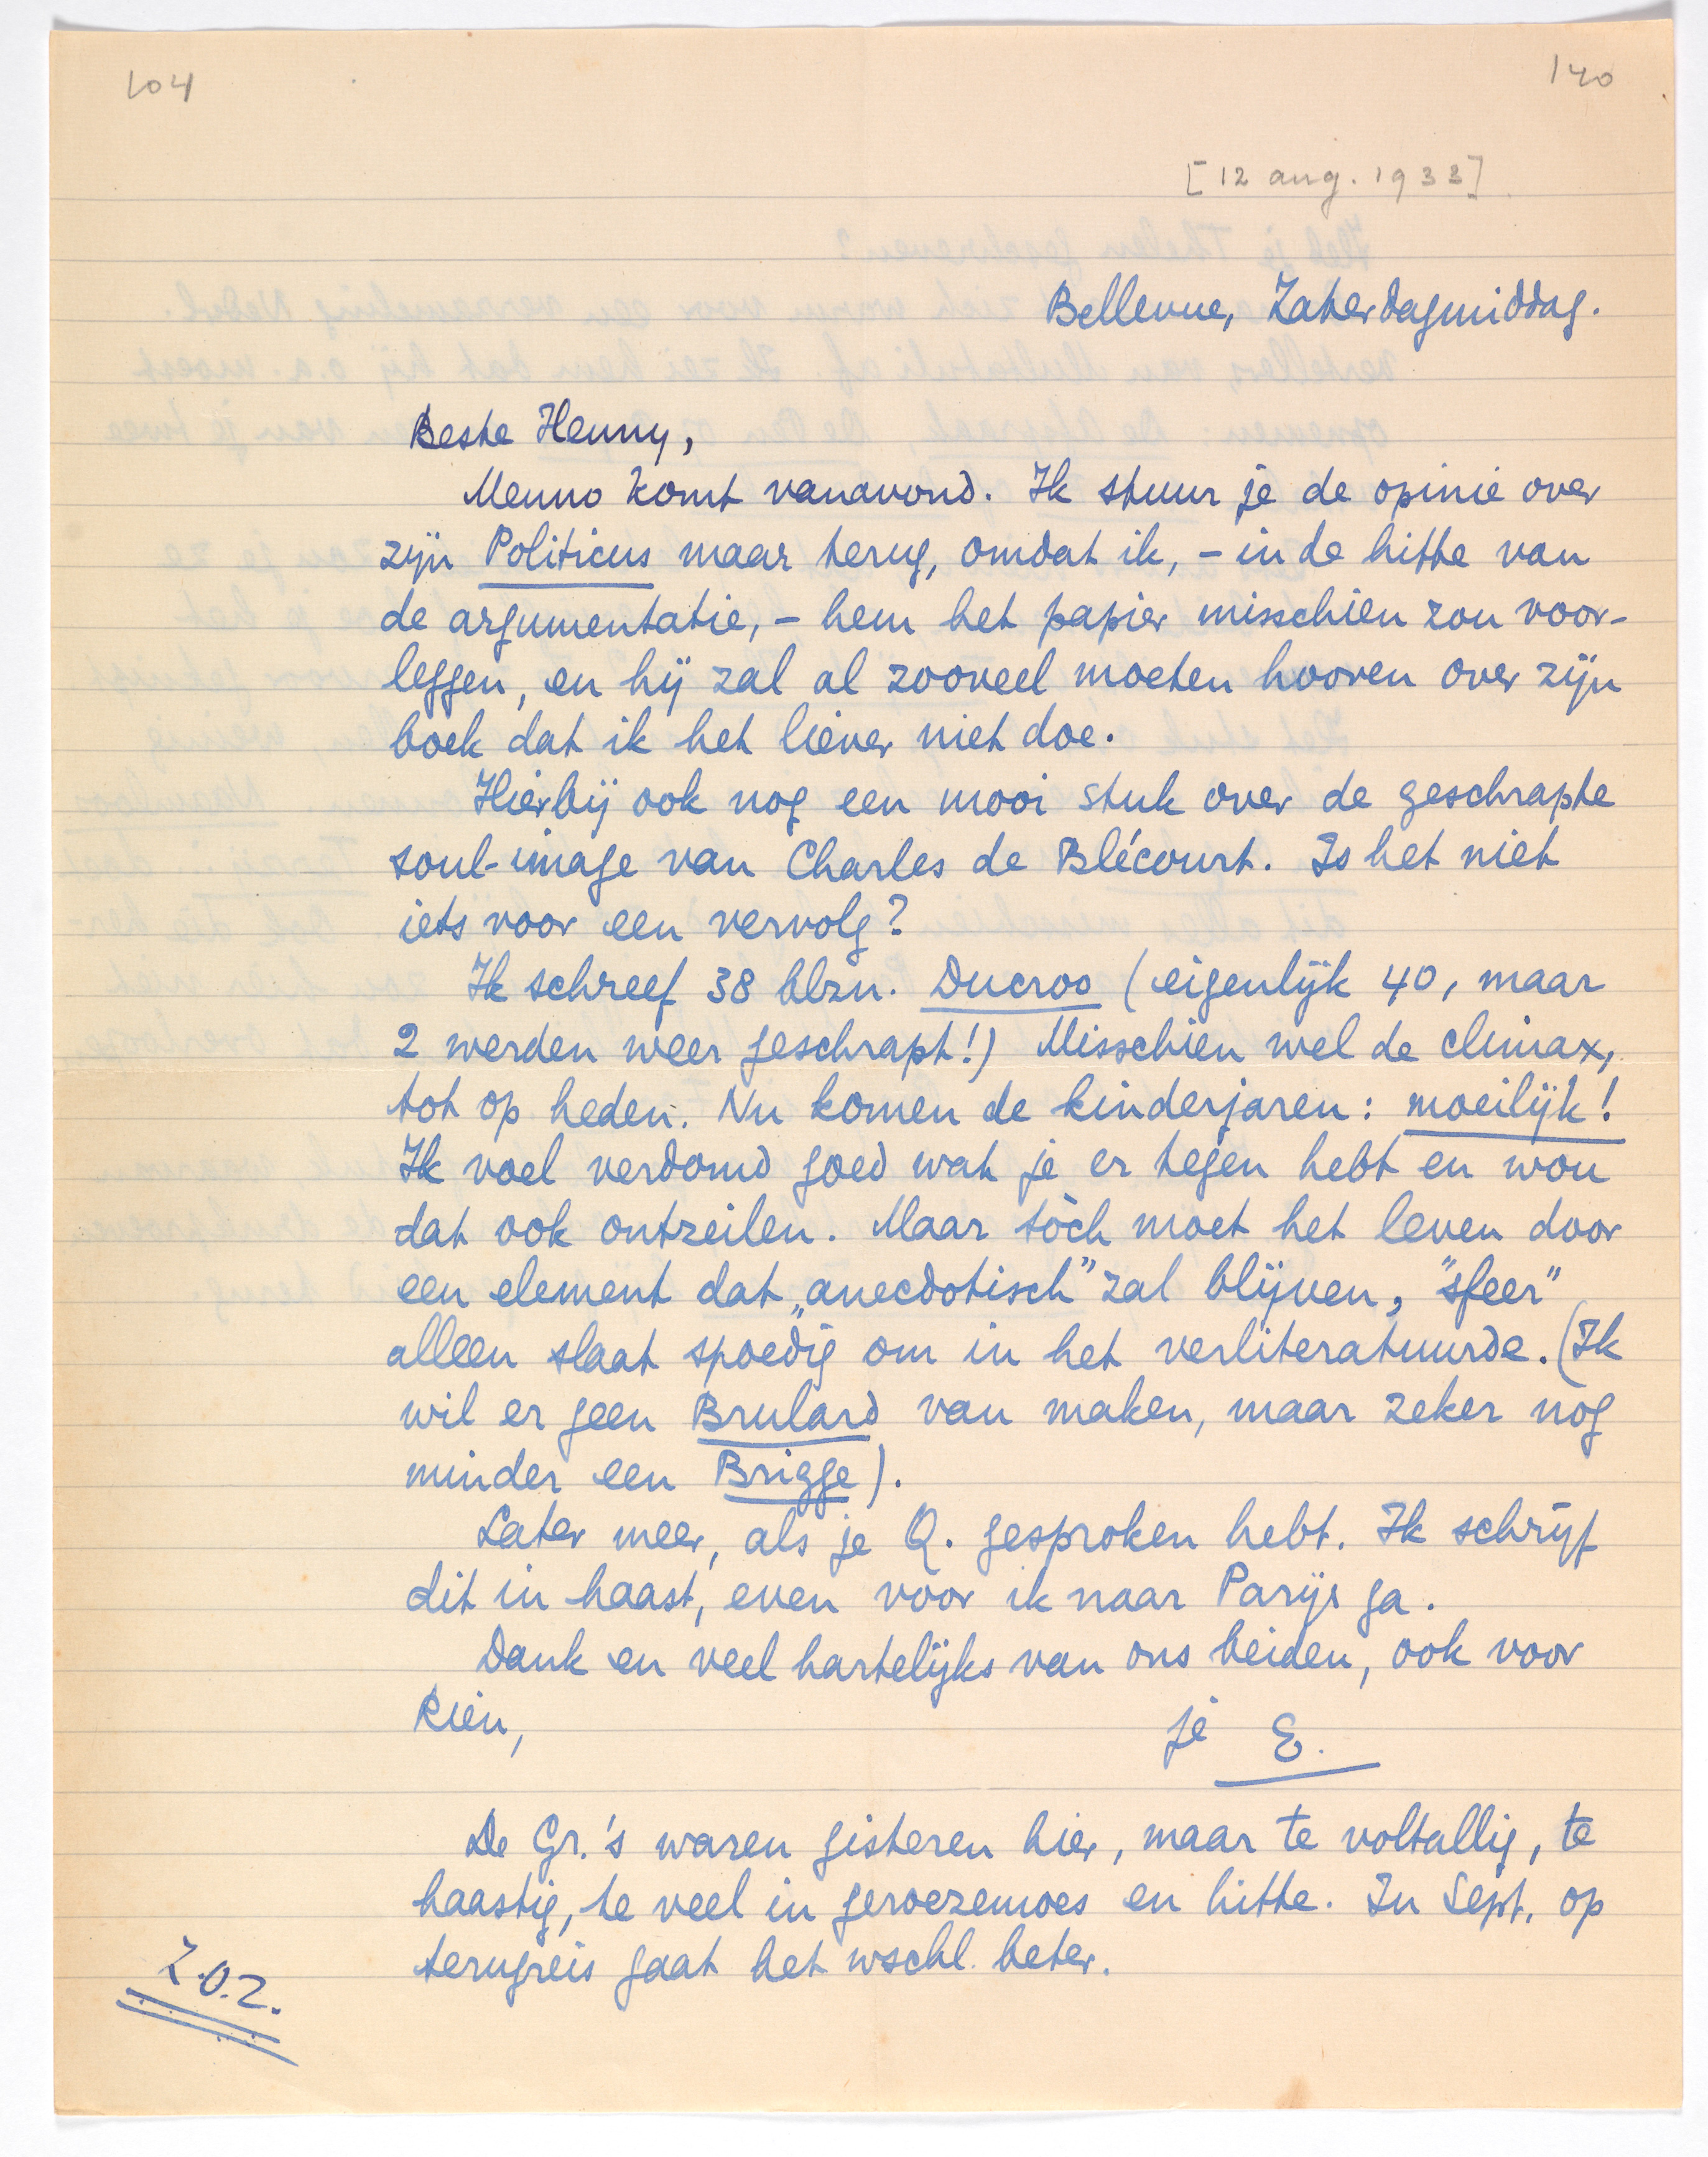 104
140
[12 aug. 1933]
Bellevue, Zaterdagmiddag.
Beste Henny,
Menno komt vanavond. Ik stuur je de opinie over
zijn Politicus maar terug, omdat ik, – in de hitte van
de argumentatie, – hem het papier misschien zou voor-
leggen, en hij zal al zooveel moeten hooren over zijn
boek dat ik het liever niet doe.
Hierbij ook nog een mooi stuk over de geschrapte
soul-image van Charles de Blécourt. Is het niet
iets voor een vervolg?
Ik schreef 38 blzn. Ducroo (eigenlijk 40, maar
2 werden weer geschrapt!) Misschien wel de climax,
tot op heden. Nu komen de kinderjaren: moeilijk!
Ik voel verdomd goed wat je er tegen hebt en wou
dat ook ontzeilen. Maar tòch moet het leven door
een element dat „anecdotisch” zal blijven, "sfeer"
alleen slaat spoedig om in het verliteratuurde. (Ik
wil er geen Brulard van maken, maar zeker nog
minder een Brigge).
Later meer, als je Q. gesproken hebt. Ik schrijf
dit in haast, even voor ik naar Parijs ga.
Dank en veel hartelijks van ons beiden, ook voor
Rien,
je E.
De Gr.'s waren gisteren hier, maar te voltallig, te
haastig, te veel in geroezemoes en hitte. In Sept. op
terugreis gaat het wschl. beter.
Z.O.Z.